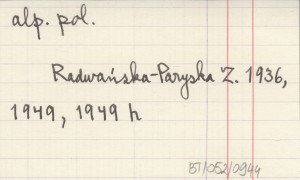 alp. pol.
Radwańska-Paryska Z. 1936,
1949, 1949 h
BT/052/0944